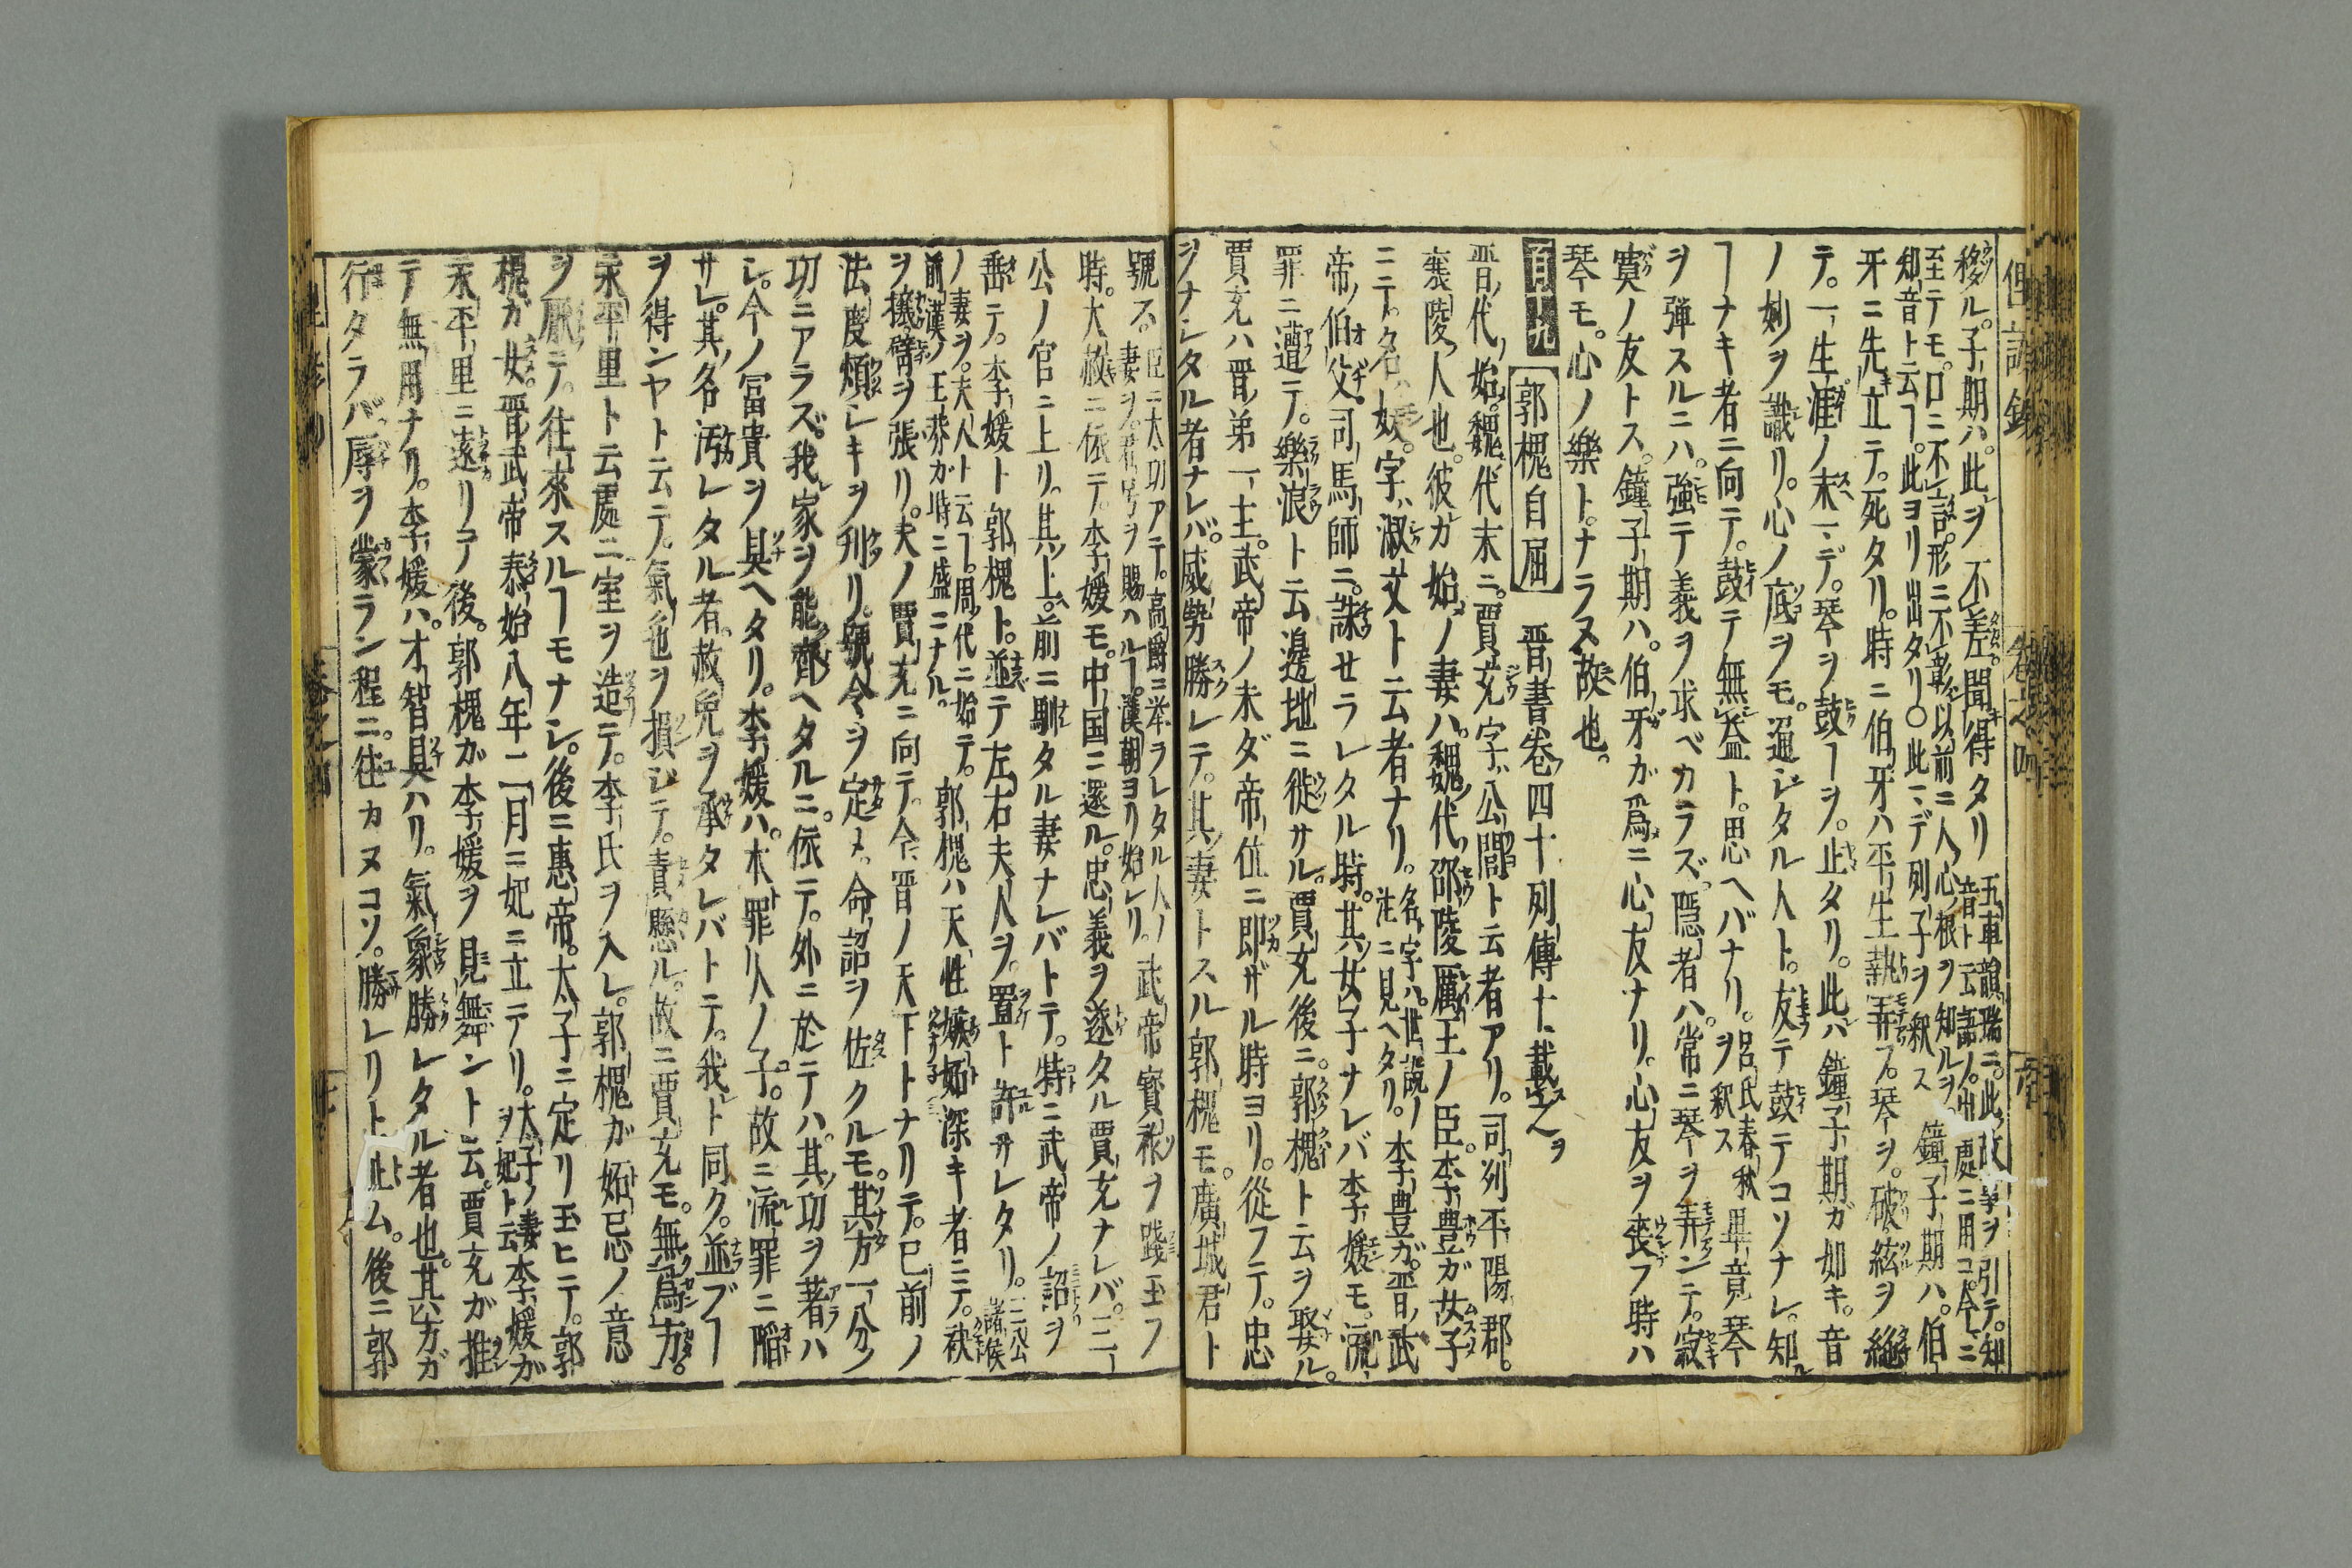 俚諺鈔 卷之四
移ル。子期ハ。此ヲ不差聞得タリ 五車韻瑞ニ。此故事ヲ引テ。知
音ト云諺ノ出處ニ用コ今ニ
至テモ。口ニ不言。形ニ不彰以前ニ人心ノ根ヲ知ルヲ。
知音ト云フ。此ヨリ出タリ〇此マデ列子ヲ釈ス 鐘子期ハ。伯
牙ニ先立テ。死タリ。時ニ伯牙ハ平生執弄フ。琴ヲ。破絃ヲ絶
テ。一生涯ノ末マデ。琴ヲ鼓ヿヲ。止タリ。此ハ鐘子期ガ如キ。音
ノ妙ヲ識リ。心ノ底ヲモ。通ジタル人ト。友テ鼓テコソナレ。知ル
ヿナキ者ニ向テ。鼓テ無益ト。思ヘバナリ。呂氏春秋
ヲ釈ス 畢竟琴
ヲ彈スルニハ。強テ義ヲ求ベカラズ。隱者ハ。常ニ琴ヲ弄ンニテ。寂
寞ノ友トス。鐘子期ハ。伯牙ガ爲ニ心友ナリ。心友ヲ喪フ時ハ
琴モ。心ノ樂ト。ナラヌ故也。
郭槐自屈 晋書卷四十列傳十載之ヲ
晋代ノ始。魏代末ニ。賈充字ハ公閭ト云者アリ。司列平陽郡。
襄陵ノ人也。彼ガ始メノ妻ハ。魏代ノ邵陵厲王ノ臣。李豊ガ女子
ニテ。名ハ媛。字ハ淑文ト云者ナリ。名字ハ。世説ノ
注ニ見ヘタリ。 李豊ガ。晋ノ武
帝ノ伯父。司馬師ニ。誅セラレタル時。其女子ナレバ李媛モ。流
罪ニ遭テ。樂浪ト云邊地ニ徙サル。賈充後ニ。郭槐ト云ヲ娶ル。
賈充ハ晋ノ第一ノ主。武帝ノ未ダ帝位ニ即ザル時ヨリ。從フテ。忠
ヲナシタル者ナレバ。威勢勝レテ。其妻トスル郭槐モ。廣城君ト
號ス。臣ニ大功アテ。高爵ニ挙ラレタル人ノ
妻ヲ。君号ヲ賜ハルヿ。漢朝ヨリ始レリ。 武帝寳祚ヲ踐玉フ
時。大赦ニ依テ。李媛モ。中国ニ還ル。忠義ヲ遂タル賈充ナレバ。三
公ノ官ニ上リ。其上。前ニ馴タル妻ナレバトテ。特ニ武帝ノ詔ヲ
垂テ。李媛ト郭槐ト。並テ左右夫人ヲ。置ト許サレタリ。三公
諸候
ノ妻ヲ。夫人ト云フ。周ノ代ニ始テ。
前漢ノ王莽ガ時ニ盛ニナル。 郭槐ハ天性嫉妬深キ者ニテ。袂
ヲ攘臂ヲ張リ。夫ノ賈充ニ向テ。今晋ノ天下トナリテ。已前ノ
法度煩シキヲ刋リ。號令ヲ定メ。命詔ヲ佐クルモ。其方一分ノ
功ニアラズ。我家ヲ能齊ヘタルニ。依テ。外ニ於テハ。其功ヲ著ハ
シ。今ノ冨貴ヲ具ヘタリ。李媛ハ。本罪人ノ子。故ニ流罪ニ陥
サレ。其名汚レタル者。赦免ヲ承タレバトテ。我ト同ク。並ブヿ
ヲ得ンヤト云テ。氣色ヲ損ジテ。責懸ル。故ニ賈充モ。無爲方。
永平里ト云處ニ室ヲ造テ。李氏ヲ入レ。郭槐ガ妬忌ノ意
ヲ厭テ。往來スルヿモナシ。後ニ惠帝。太子ニ定リ玉ヒテ。郭
槐ガ女。晋武帝泰始八年二月ニ妃ニ立テリ。太子ノ妻
ヲ妃ト云 李媛ガ
永平里ニ遠リテ後。郭槐ガ李媛ヲ見舞ント云。賈充ガ推
テ無用ナリ。李媛ハ。才智具ハリ。氣象勝レタル者也。其方ガ
行タラバ辱ヲ蒙ラン程ニ。往カヌコソ。勝レリト止ム。後ニ郭